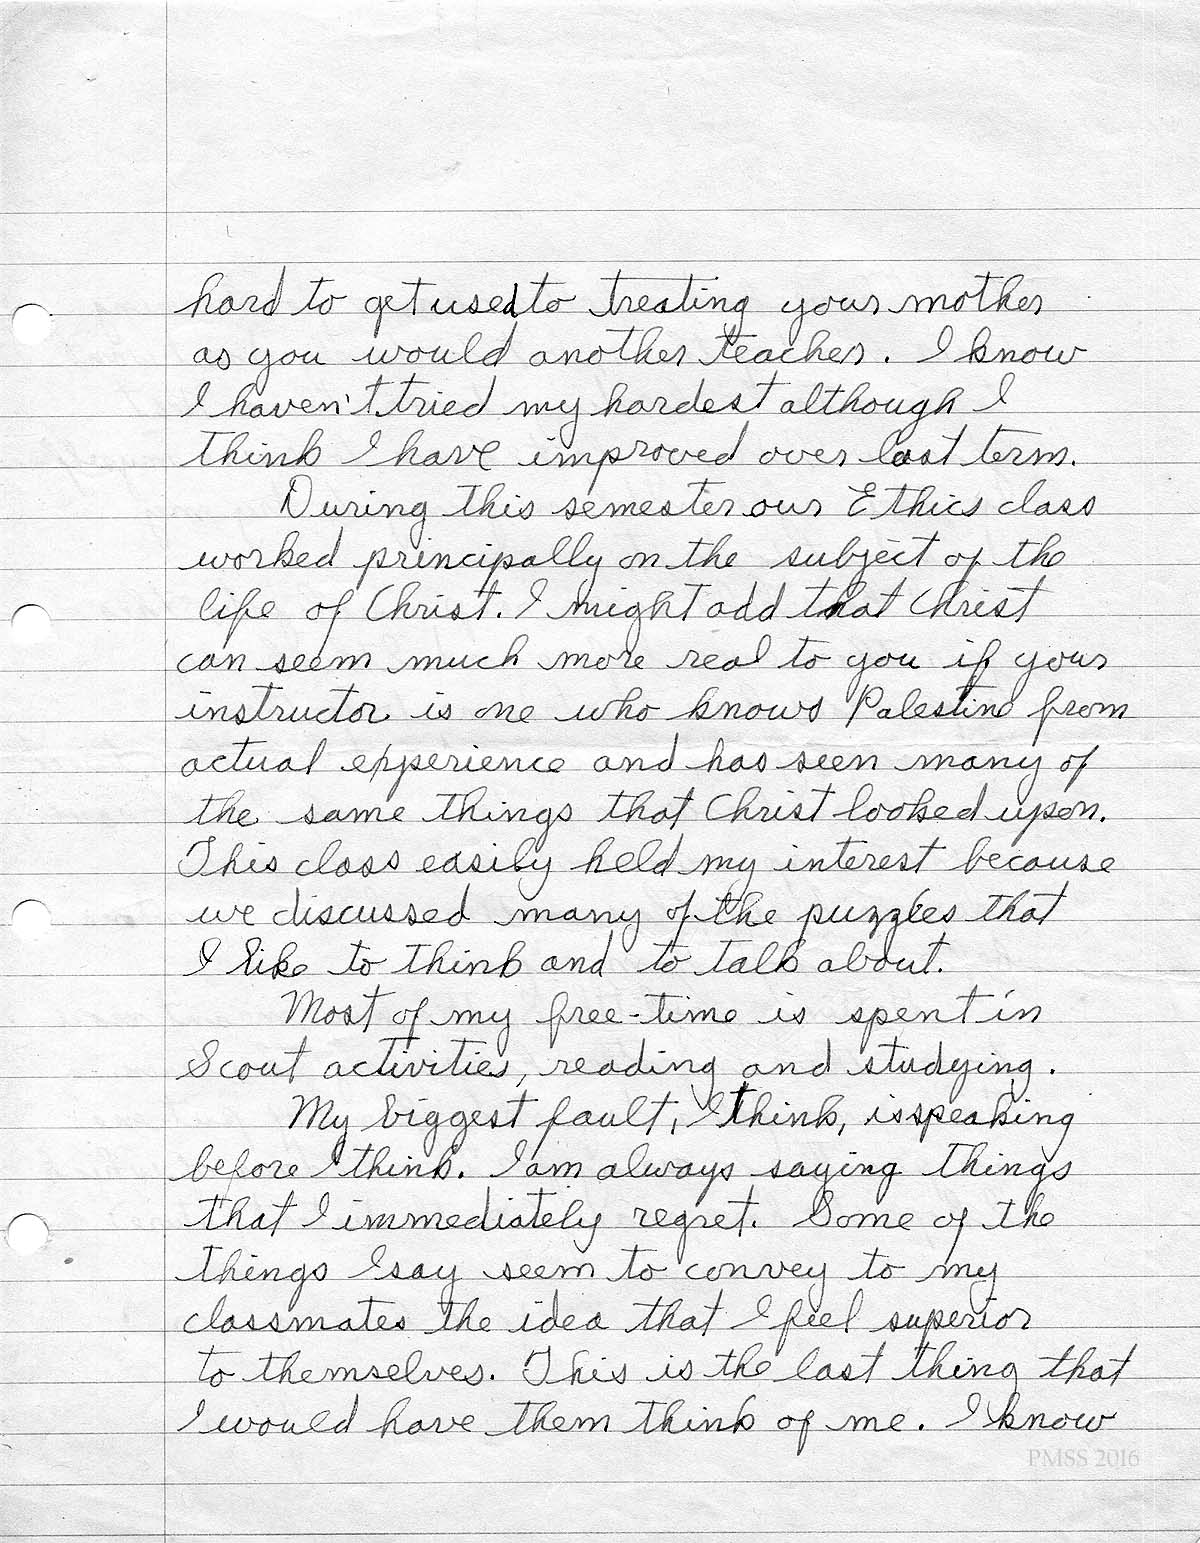 hard to get used to treating your mother
as you would another teacher. I know
I haven't tried my hardest although I
think I have improved over last term.
During this semester our Ethics class
worked principally on the subject of the
life of Christ. I might add that Christ
can seem much more real to you if your
instructor is one who knows Palestine from
actual experience and has seen many of
the same things that Christ looked upon.
This class easily held my interest because
we discussed many of the puzzles that
I like to think and to talk about.
Most of my free-time is spent in
Scout activities, reading and studying.
My biggest fault, I think, is speaking
before I think. I am always saying things
that I immediately regret. Some of the
things I say seem to convey to my
classmates the idea that I feel superior
to themselves. This is the last thing that
I would have them think of me. I know
PMSS 2016